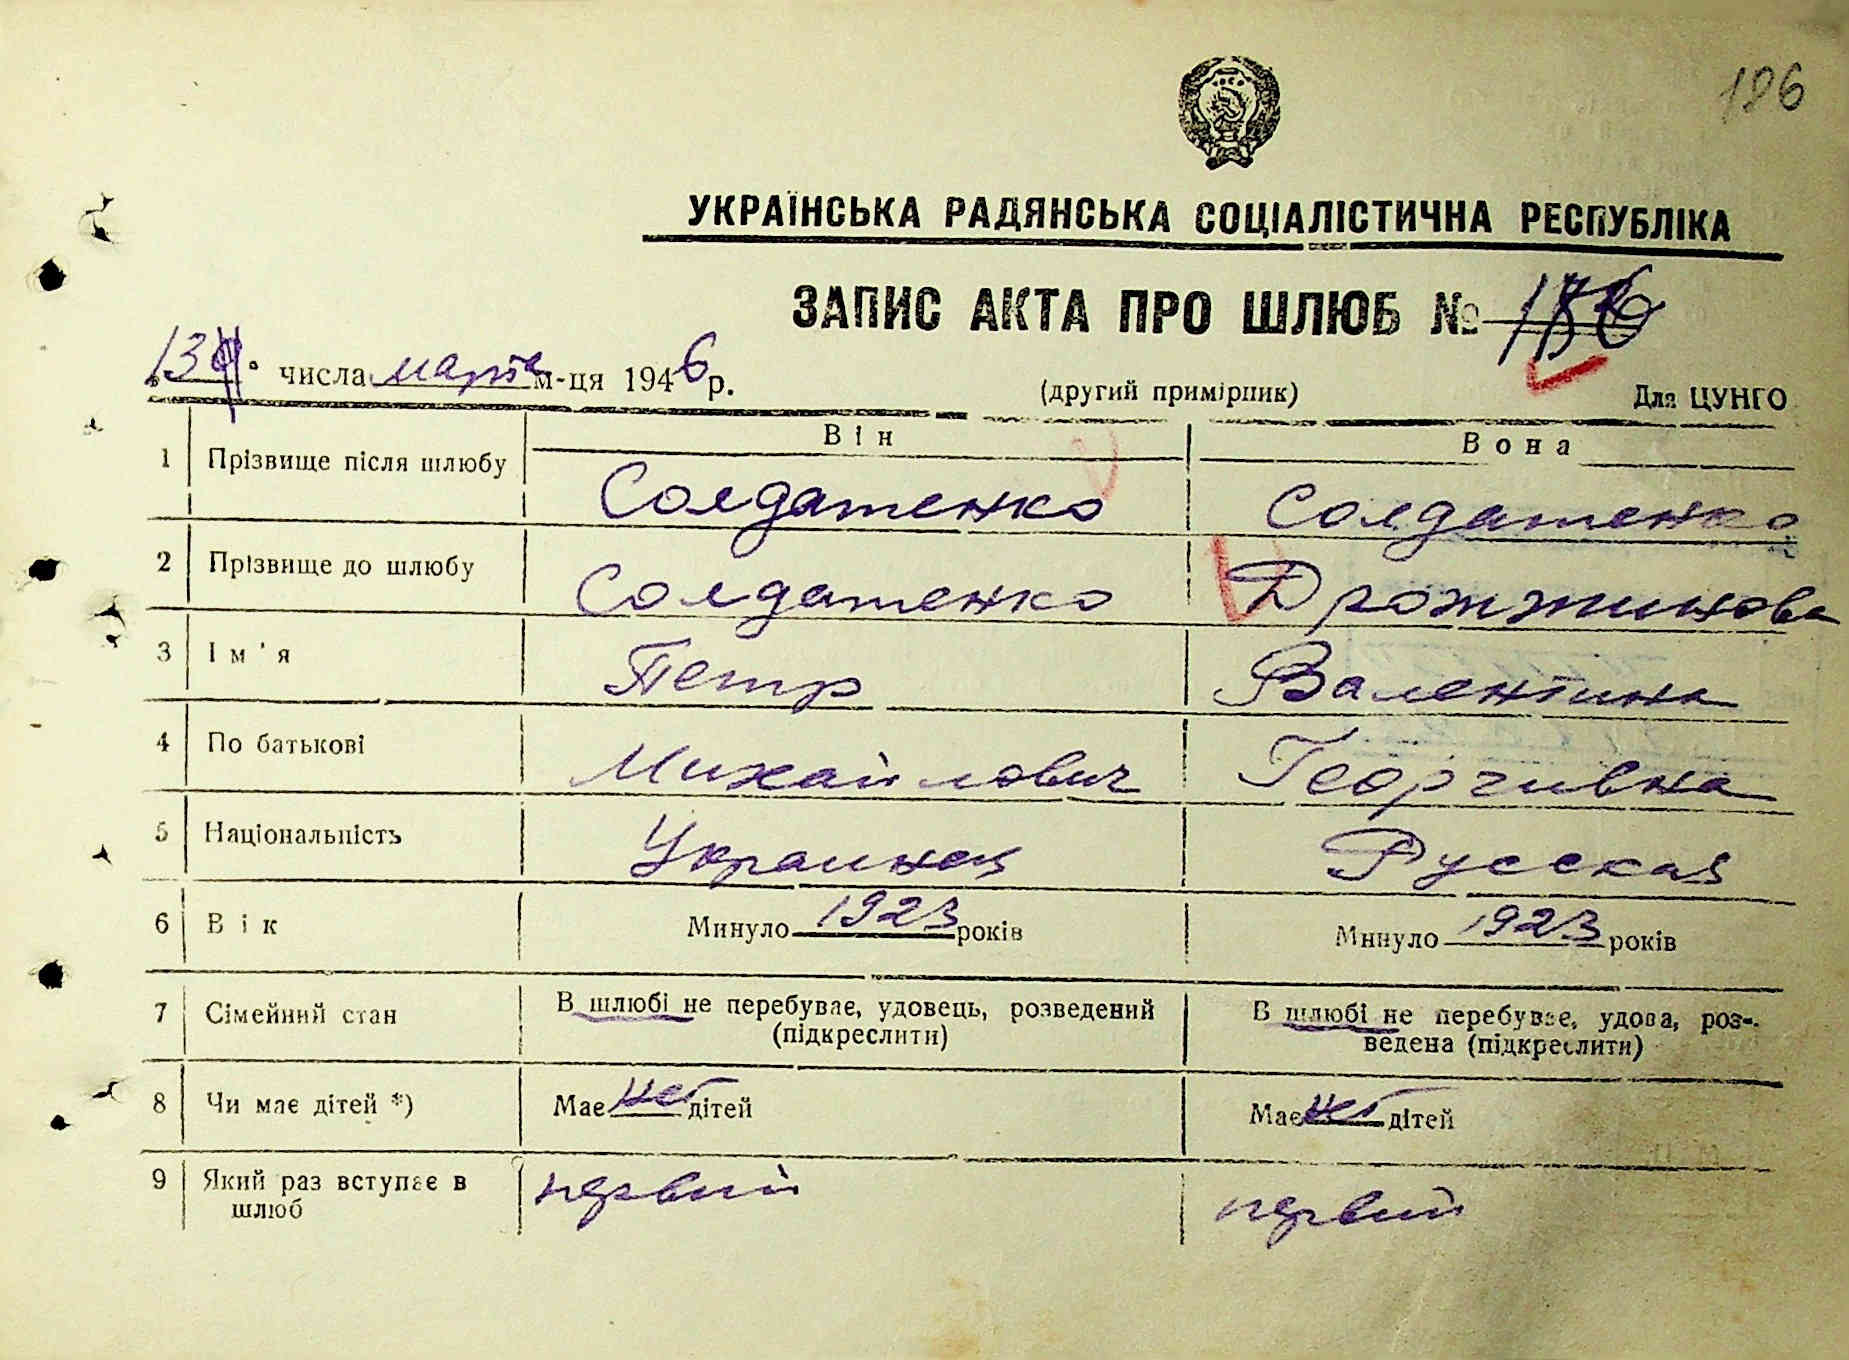 106
УКРАЇНСЬКА РАДЯНСЬКА СОЦІАЛІСТИЧНА РЕСПУБЛІКА
ЗАПИС АКТА ПРО ШЛЮБ №
13 числа марта м-ця 1946 р. (другий примірник) Для ЦУНГО
Він Вона
1 Прізвище після шлюбу Солдатенко Солдатенко
2 Прізвище до шлюбу Солдатенко Дрожжинова
3 Ім'я Петр Валентина
4 По батькові Михайлович Георгивна
5 Національність Украинец Русская
6 Вік Минуло 1923 років Минуло 1923 років
7 Сімейний стан В шлюбі не перебуває, удовець, розведений В шлюбі не перебуває, удова, роз-
(підкреслити) ведена (підкреслити)
8 Чи має дітей *) Має нет дітей Має нет дітей
9 Який раз вступає в первий первий
шлюб